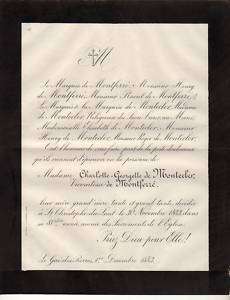 Le Marquis de Montferré, Monsieur Henry
de Montferré, Monsieur Raoul de Montferré,
Le Marquis & la Marquise de Montecler, Madame
de Montecler Religieuse du Sacré Cœur au Mans,
Mademoiselle Elisabeth de Montecler, Monsieur
Henry de Montecler, Monsieur Roger de Montecler,
Ont l'honneur de vous faire part de la perte douloureuse
qu'ils viennent d'éprouver en la personne de
Madame Charlotte-Georgette de Montecler,
Vicomtesse de Montferré,
leur mère, grand'mère, tante et grand'tante, décédée
à St Christophe du Luat, le 30 Novembre 1883, dans
sa année, munie des Sacrements de l'Eglise.
Priez Dieu pour Elle!
Le 1er Décembre 1883.